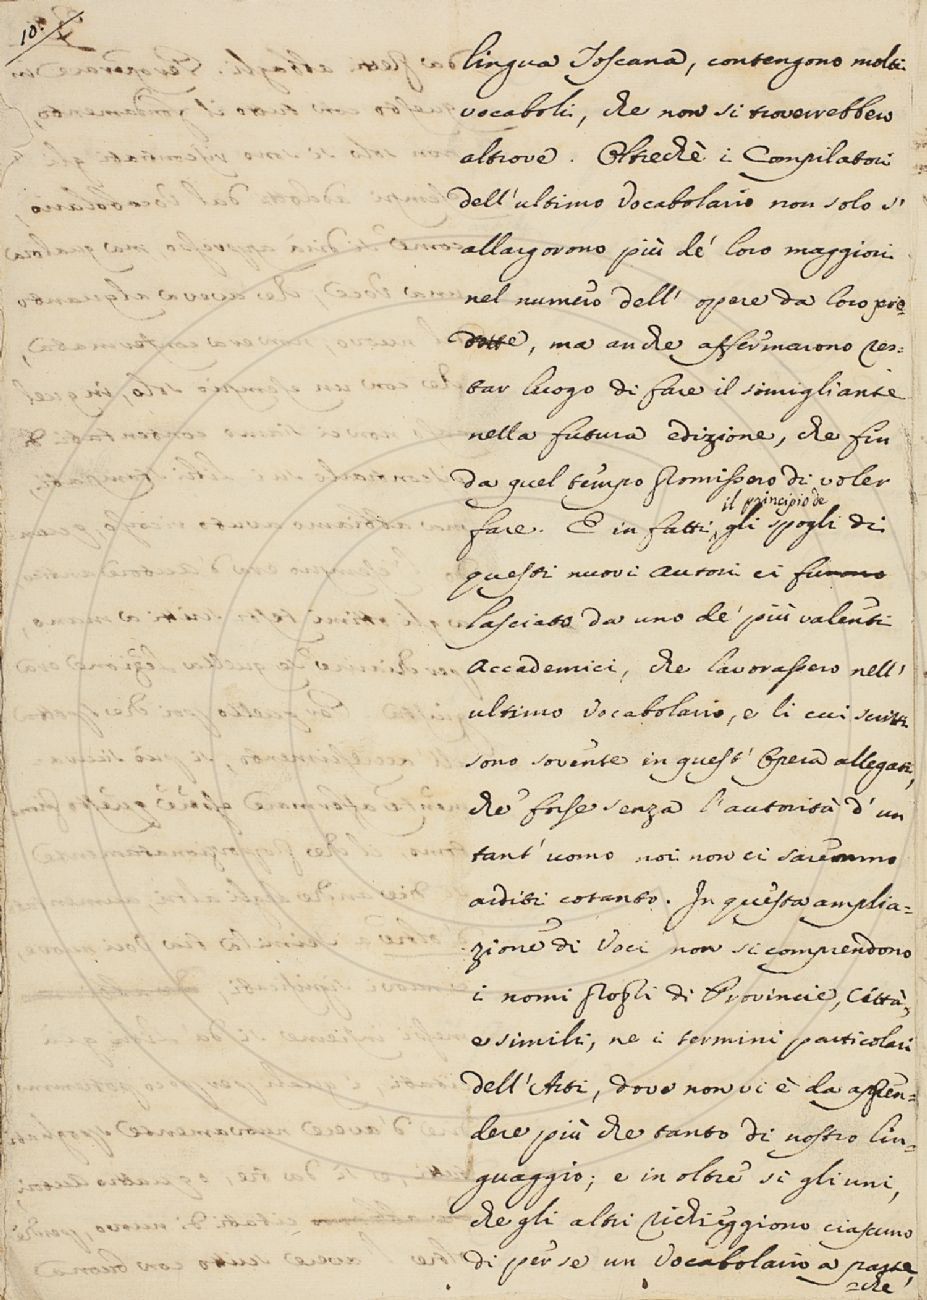 10.
lingua Toscana, contengono molti
vocaboli, che non si troverrebbero
altrove. Oltrechè i Compilatori
dell'ultimo Vocabolario non solo s'
allargorono più de' loro maggiori
nel numero dell' opere da loro
, ma anche affermarono res=
tar luogo di fare il simigliante
nella futura edizione, che fin
da quel tempo promissero di voler
il principio de
fare. E in fatti, gli spogli di
questi nuovi Autori ci furono
lasciato da uno de' più valenti
Accademici, che lavorassero nell'
ultimo Vocabolario, e li cui scritti
sono sovente in quest' Opera allegati,
che forse senza l'autorità d'un
tant' uomo noi non ci saremmo
arditi cotanto. In questa amplia=
zione di Voci non si comprendono
i nomi propri di Provincie, Città,
e simili, ne i termini particolari
dell'Arti, dove non vi è da appren=
dere più che tanto di nostro lin=
guaggio; e in oltre si gli uni,
che gli altri richieggiono ciascuno
di per se un Vocabolario a parte,
=che'